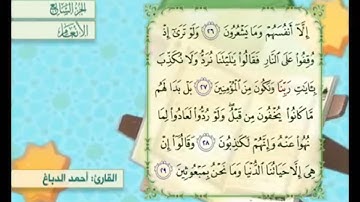 الجزء السابع
الأنعام
إِلَّا أَنفُسَهُمْ وَمَا يَشْعُرُونَ ٢٦ وَلَوْ تَرَىٰ إِذْ
وُقِفُوا عَلَى النَّارِ فَقَالُوا يَا لَيْتَنَا نُرَدُّ وَلَا نُكَذِّبَ
بِآيَاتِ رَبِّنَا وَنَكُونَ مِنَ الْمُؤْمِنِينَ ٢٧ بَلْ بَدَا لَهُم
مَّا كَانُوا يُخْفُونَ مِن قَبْلُ وَلَوْ رُدُّوا لَعَادُوا لِمَا
نُهُوا عَنْهُ وَإِنَّهُمْ لَكَاذِبُونَ ٢٨ وَقَالُوا إِنْ
هِيَ إِلَّا حَيَاتُنَا الدُّنْيَا وَمَا نَحْنُ بِمَبْعُوثِينَ ٢٩
القارئ: أحمد الدباغ